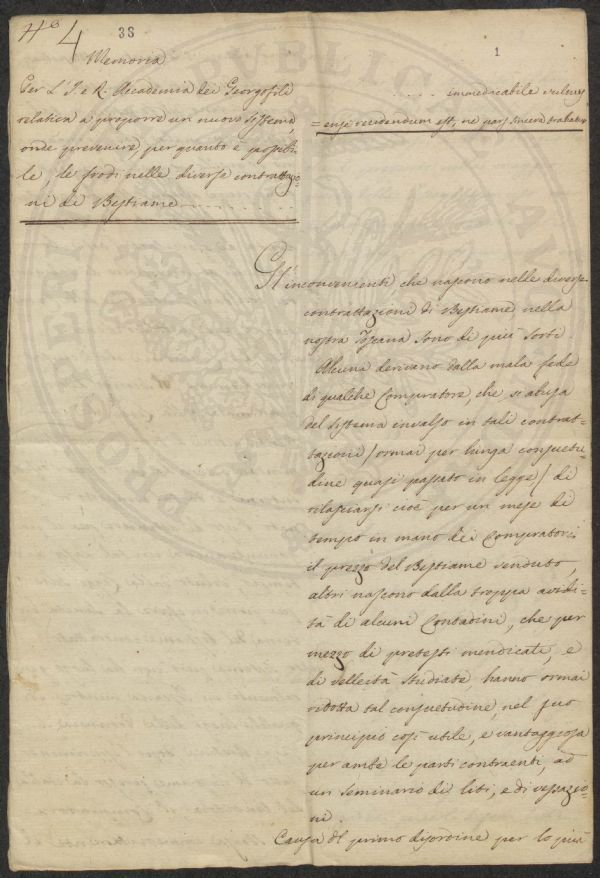 N° 4
38
1
Memoria
Per L'I. e R. Accademia dei Georgofili
relativa a proporre un nuovo sistema,
onde prevenire, per quanto è possibi-
le, le frodi nelle diverse contrattazio-
ni di Bestiame
..... immedicabile vulnus
= ense recidendum est, ne pars sincera trahatur
Gl'inconvenienti che nascono nelle diverse
contrattazioni di Bestiame nella
nostra Toscana sono di più sorti.
Alcuni derivano dalla mala fede
di qualche Compratore, che si abusa
del sistema invalso in tali contrat=
tazioni / ormai per lunga consuetu-
dine quasi passato in legge / di
rilasciarsi cioè per un mese di
tempo in mano dei Compratori
il prezzo del Bestiame venduto,
altri nascono dalla troppa avidi=
tà di alcuni Contadini, che per
mezzo di pretesti mendicati, e
di selleità studiate, hanno ormai
ridotta tal consuetudine, nel suo
principio così utile, e vantaggiosa
per ambe le parti contraenti, ad
un seminario di liti, e di vessazio=
ni.
Causa del primo disordine per lo più
PROPRIETÀ PUBLICA